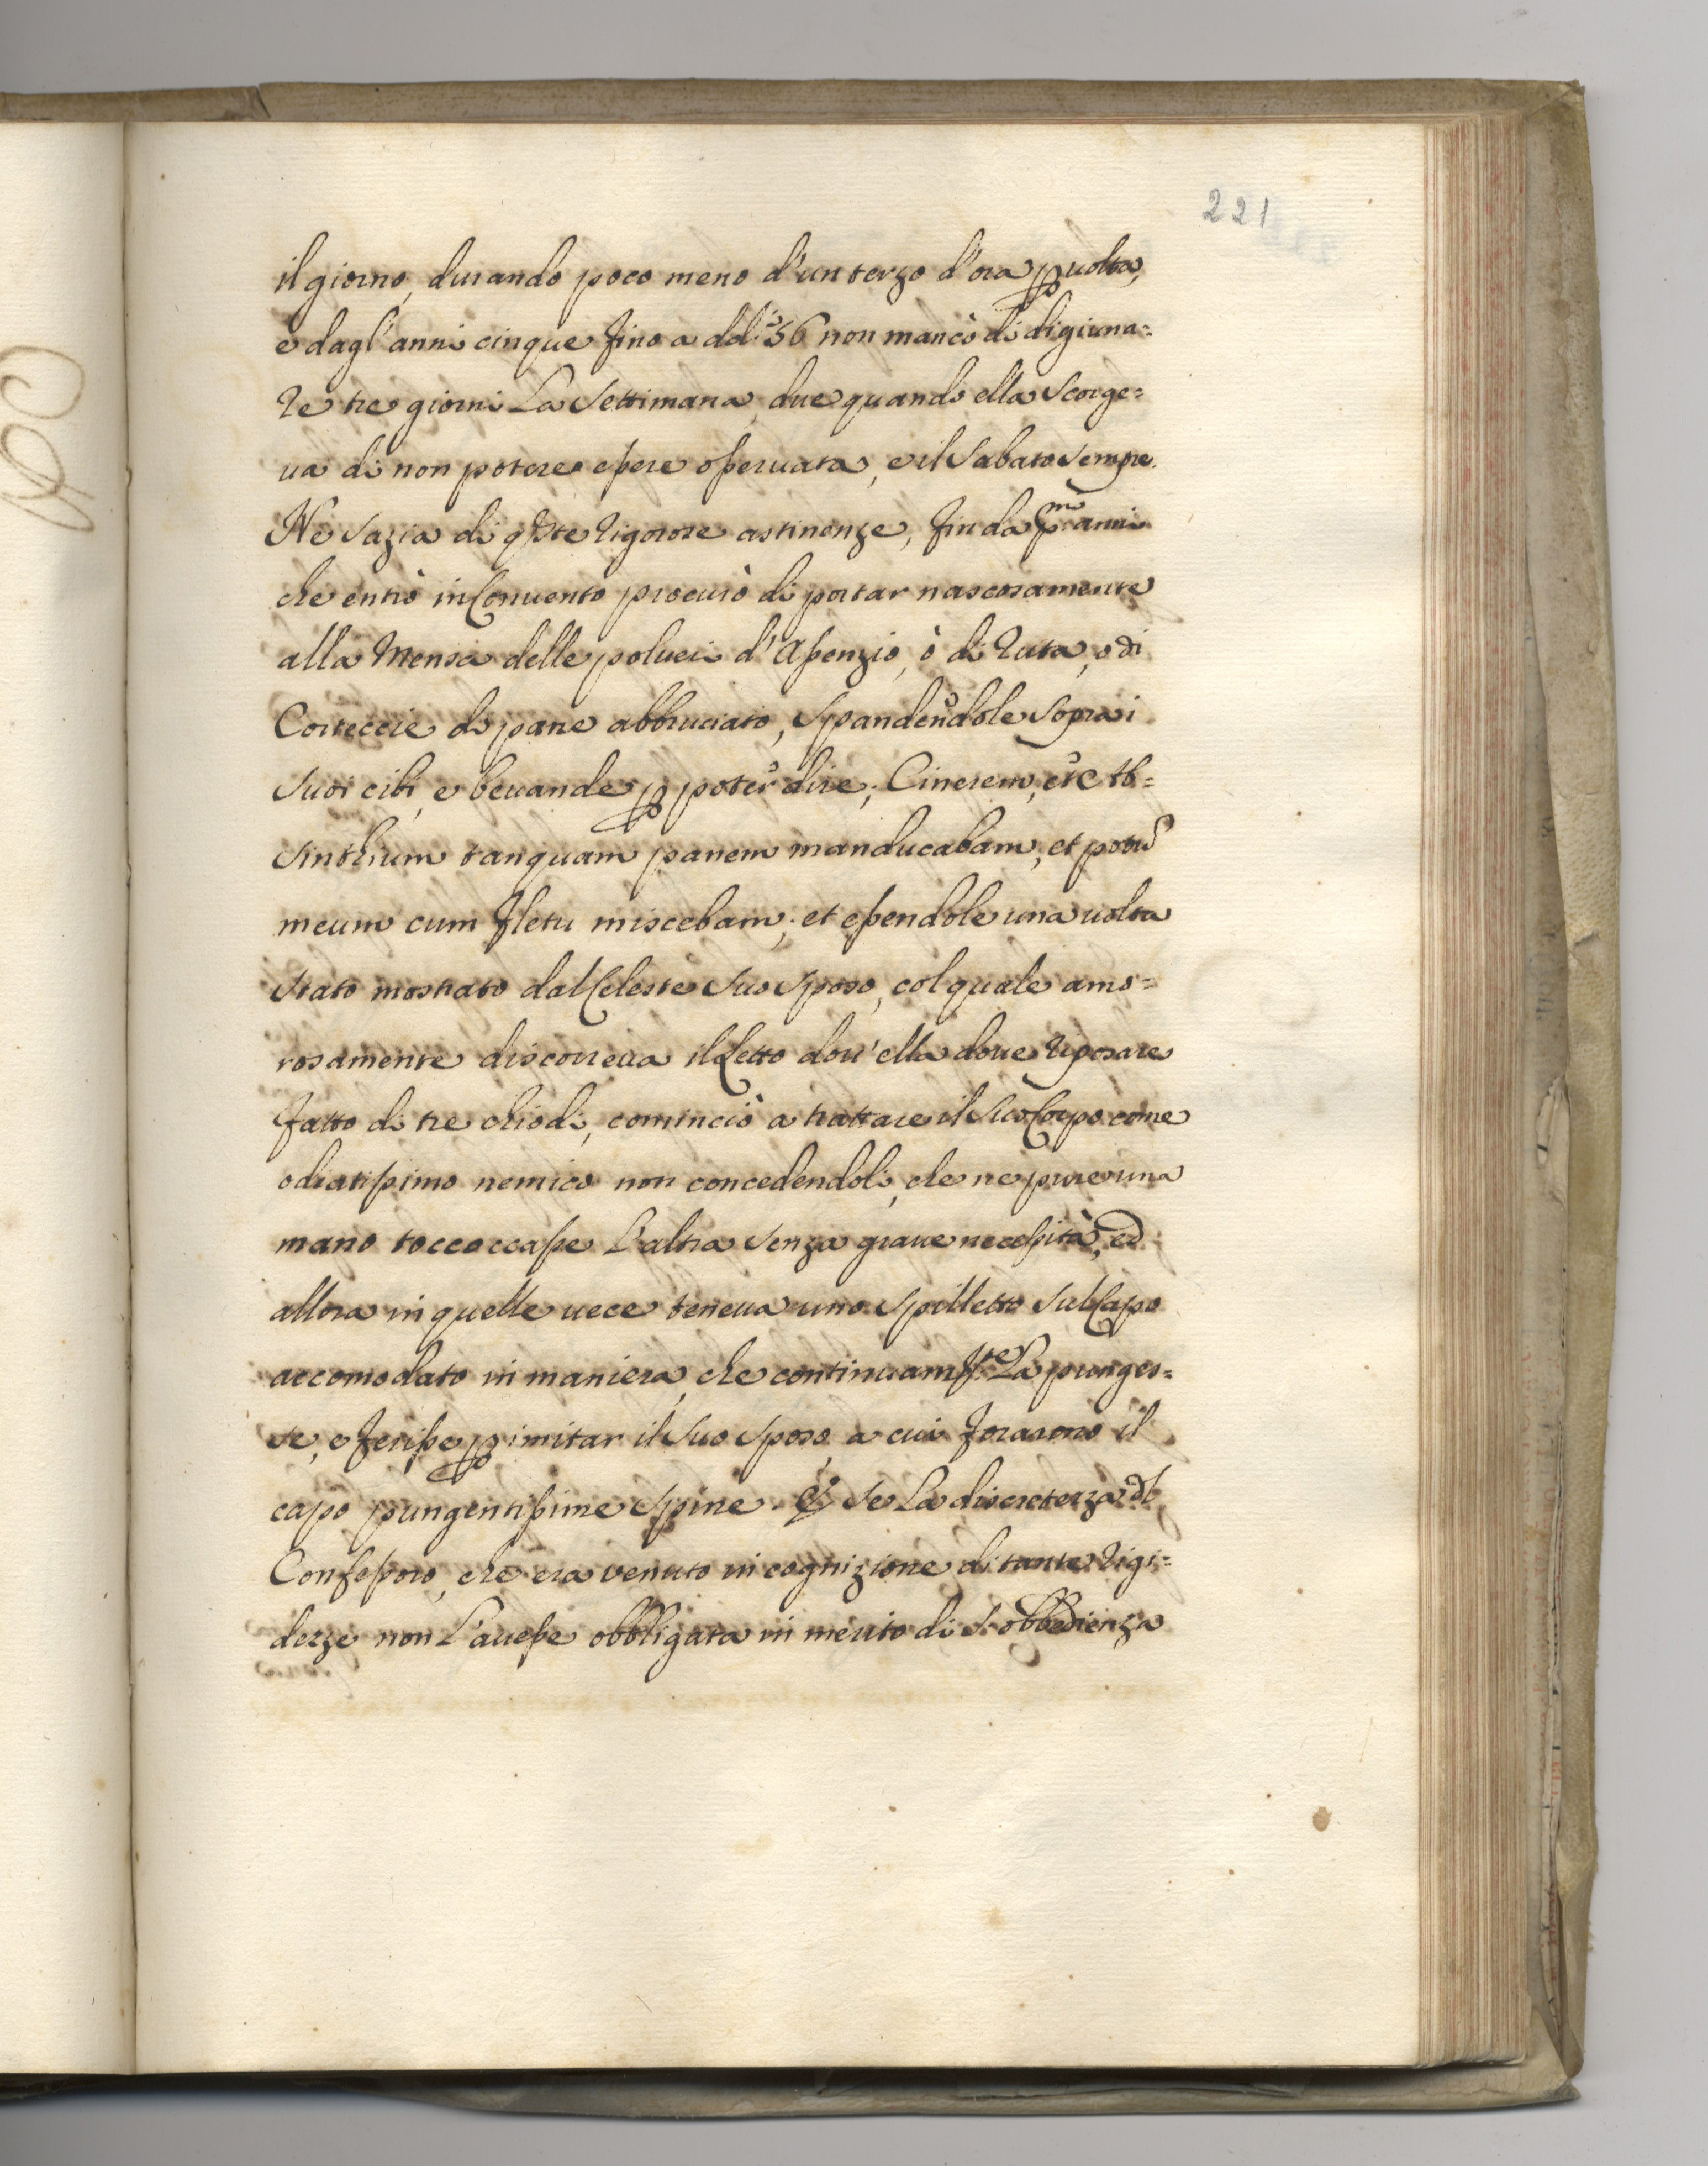 221
il giorno, durando poco meno d'un terzo d'ora p uolta,
e dagl'anni cinque fino a dd.i 56 non mancò di digiuna=
re tre giorni La Settimana, due quando ella Scorge=
ua di non potere essere osseruata, e il Sabato Sempre.
Ne Sazia di qste rigorose astinenze, fin da pmi anni
che entrò in Conuento procurò di portar nascosamente
alla Mensa delle poluei d'Assenzio, ò di ruta, o di
Corteccie di pane abbruciato, Spandeñdole Sopra i
Suoi cibi, e beuande p poter dire; Cinerem, et Ab=
Sinthium tanquam panem manducabam, et potũ
meum cum fletu miscebam; et essendole una uolta
Stato mostrato dal Celeste Suo Sposo, col quale amo=
rosamente discorreua il Letto dou'ella doue riposare
fatto di tre chiodi, cominciò a trattare il Suo Corpo come
odiatissimo nemico non concedendoli, che ne pure una
mano toccoccasse L'altra Senza graue necessità, ed
allora in quelle uece teneua uno Spilletto Sul Capo
accomodato in maniera, che continuamte La punges=
se, e ferisse p imitar il Suo Sposo, a cui forarono il
capo pungentissime Spine. E Se La discretezza dl
Confessoro, che era venuto in cognizione di tante rigi=
dezze non L'auesse obbligata in merito di S. obbedienza